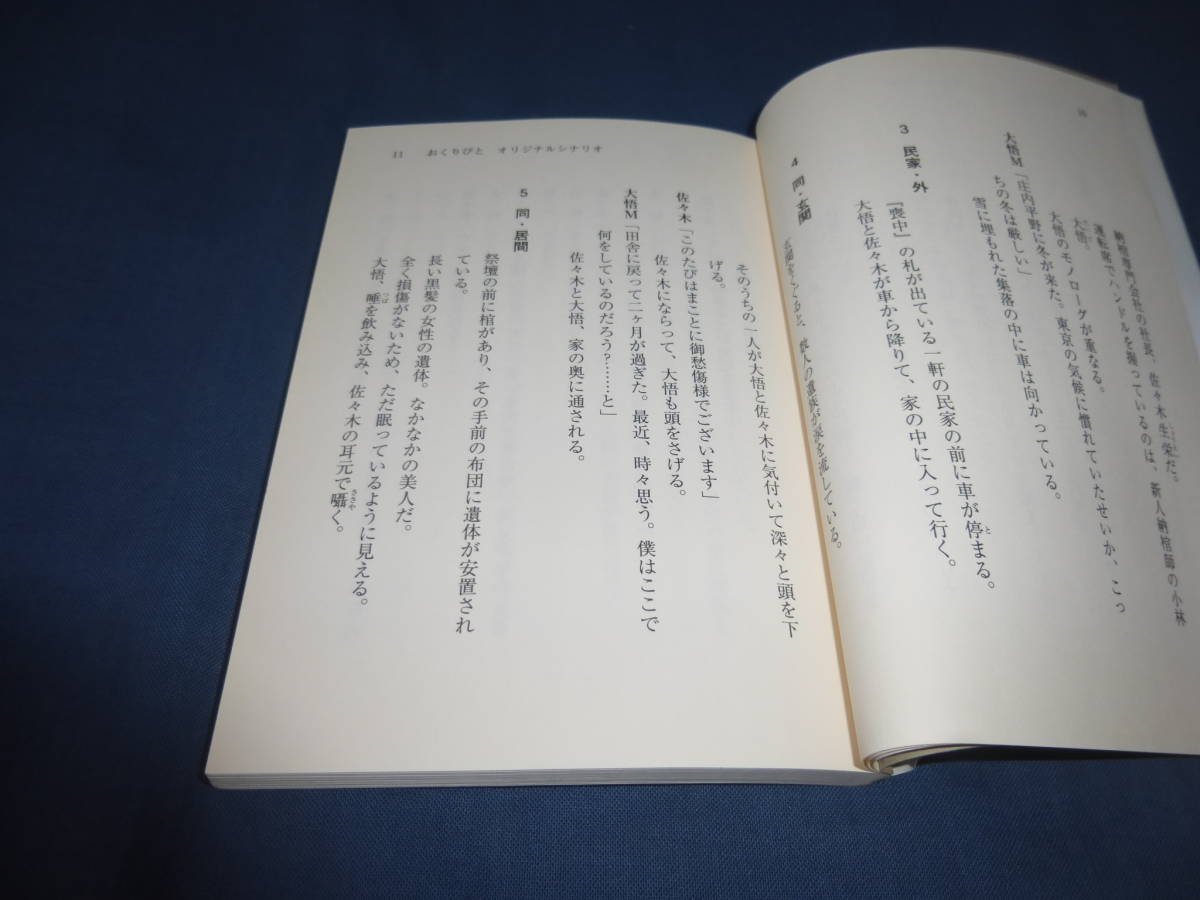 納棺専門会社の社長、佐々木生栄だ。
運転席でハンドルを握っているのは、新人納棺師の小林
大悟。
大悟のモノローグが重なる。
大悟M「庄内平野に冬が来た。東京の気候に慣れていたせいか、こっ
ちの冬は厳しい」
雪に埋もれた集落の中に車は向かっている。
3 民家・外
『喪中』の札が出ている一軒の民家の前に車が停まる。
大悟と佐々木が車から降りて、家の中に入って行く。
4 同・玄関
数人の遺族が涙を流している。
11 おくりびと オリジナルシナリオ
そのうちの一人が大悟と佐々木に気付いて深々と頭を下
げる。
佐々木「このたびはまことに御愁傷様でございます」
佐々木にならって、大悟も頭をさげる。
大悟M「田舎に戻って二ヶ月が過ぎた。最近、時々思う。僕はここで
何をしているのだろう？………と」
佐々木と大悟、家の奥に通される。
5 同・居間
祭壇の前に棺があり、その手前の布団に遺体が安置され
ている。
長い黒髪の女性の遺体。なかなかの美人だ。
全く損傷がないため、ただ眠っているように見える。
大悟、唾を飲み込み、佐々木の耳元で囁く。